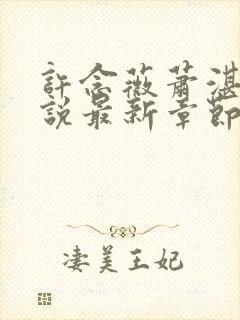 許念薇蕭湛
說最新章節
淒美王妃